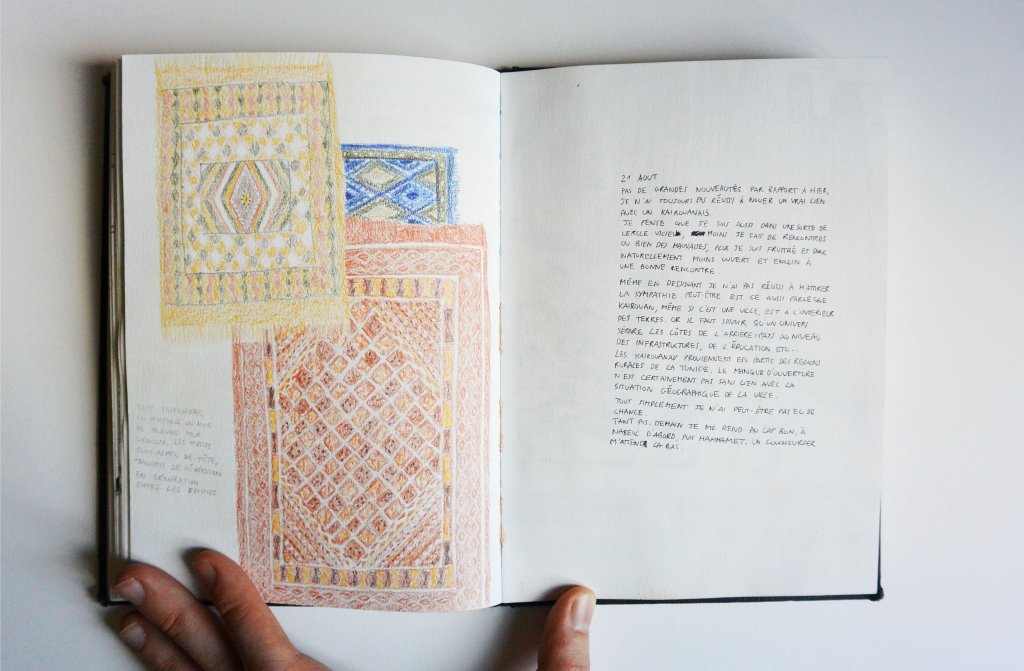 TAPIS KAIROUANAIS
EN MOYENNE UN MOIS
DE TRAVAIL POUR
CHACUN. LES MOTIFS
SONT APPRIS DE TÊTE,
TRANSMIS DE GÉNÉRATION
EN GÉNÉRATION
ENTRE LES FEMMES
21 AOUT
PAS DE GRANDES NOUVEAUTÉS PAR RAPPORT À HIER,
JE N'AI TOUJOURS PAS RÉUSSI À NOUER UN VRAI LIEN
AVEC UN KAIROUANAIS.
JE PENSE QUE JE SUIS AUSSI DANS UNE SORTE DE
CERCLE VICIEUX MOINS JE FAIT DE RENCONTRES
OU BIEN DES MAUVAISES, PLUS JE SUIS FRUSTRÉ ET DONC
NATURELLEMENT MOINS OUVERT ET ENCLIN À
UNE BONNE RENCONTRE.
MÊME EN DESSINANT JE N'AI PAS RÉUSSI À M'ATTIRER
LA SYMPATHIE PEUT-ÊTRE EST CE AUSSI PARCE QUE
KAIROUAN, MÊME SI C'EST UNE VILLE, EST À L'INTÉRIEUR
DES TERRES. OR IL FAUT SAVOIR QU'UN UNIVERS
SÉPARE LES CÔTES DE L'ARRIÈRE-PAYS AU NIVEAU
DES INFRASTRUCTURES, DE L'ÉDUCATION ETC.
LES KAIROUANAIS PROVIENNENT EN PARTIE DES RÉGIONS
RURALES DE LA TUNISIE. LE MANQUE D'OUVERTURE
N'EST CERTAINEMENT PAS SANS LIEN AVEC LA
SITUATION GÉOGRAPHIQUE DE LA VILLE.
TOUT SIMPLEMENT JE N'AI PEUT-ÊTRE PAS EU DE
CHANCE.
TANT PIS. DEMAIN JE ME REND AU CAP BON, À
NABEUL D'ABORD, PUIS HAMMAMET. UN COUCHSURFER
M'ATTEND LA BAS.